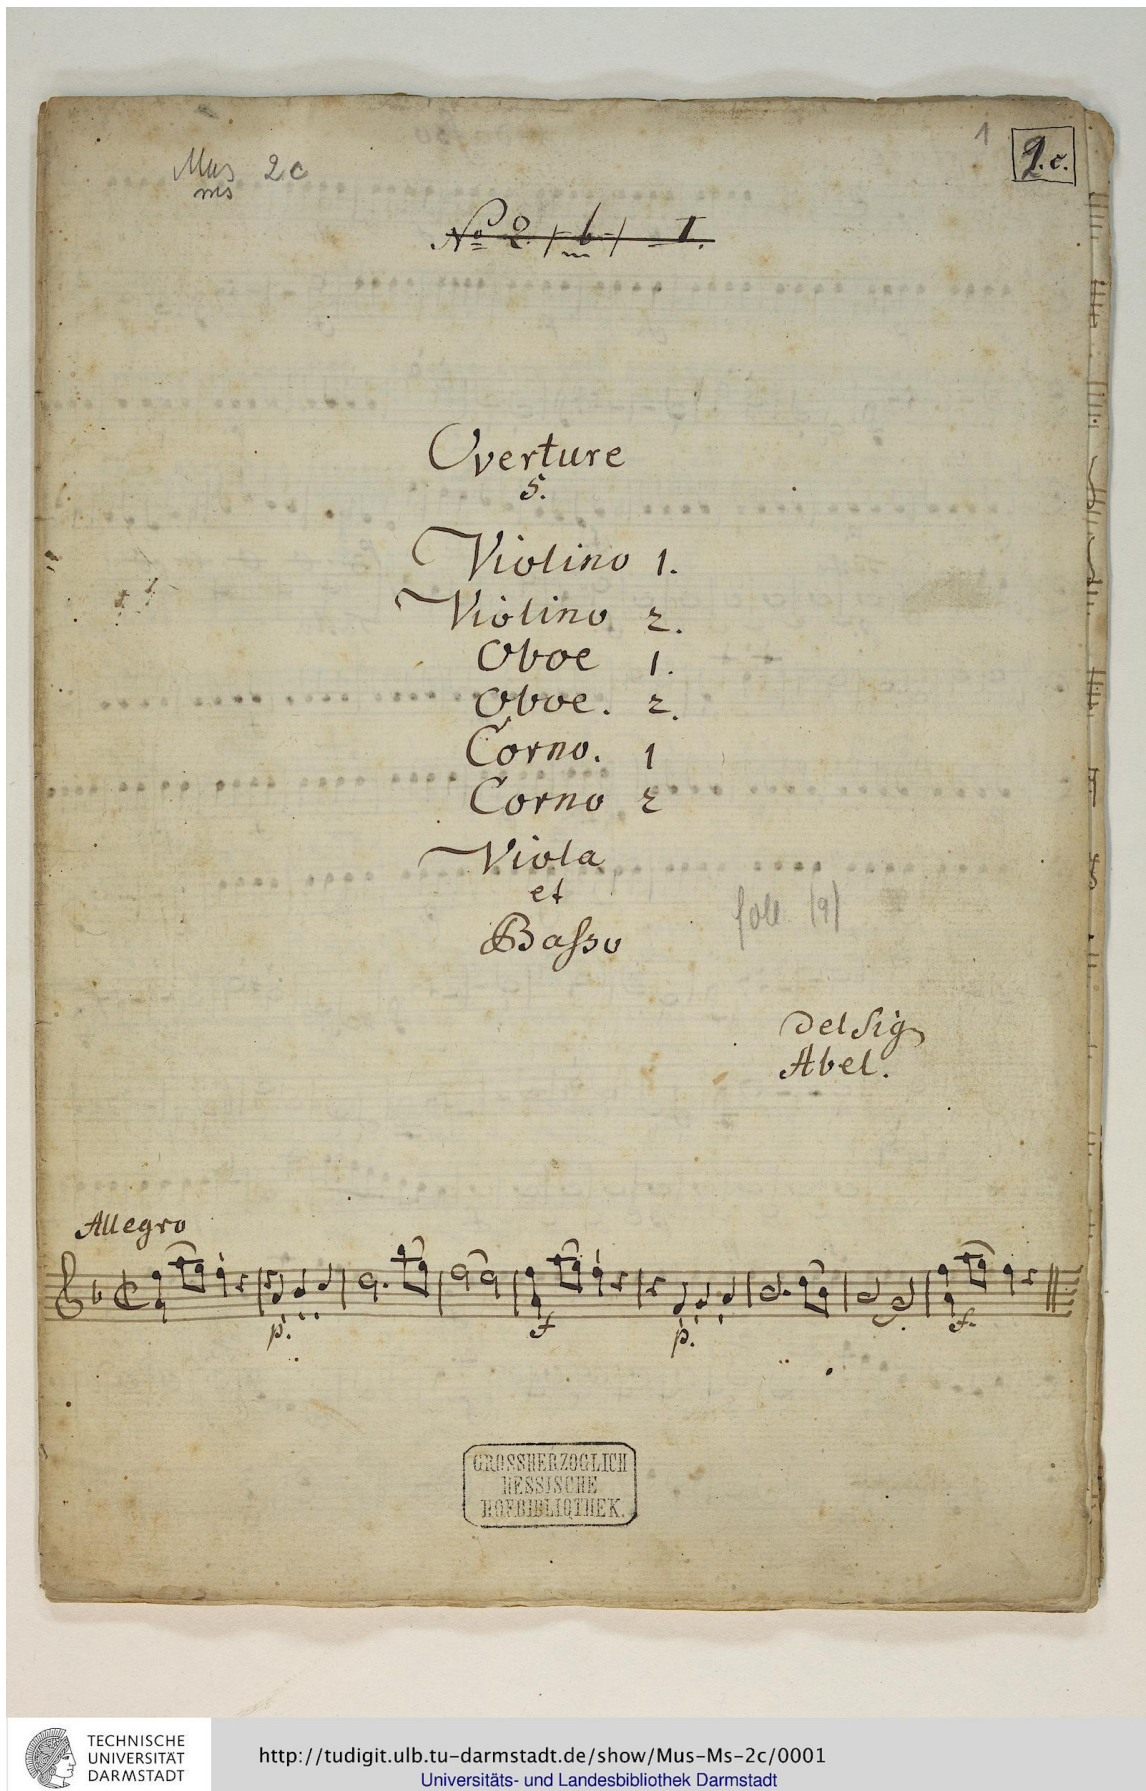 Mus 2c
ms
1
2.c.
No 2. / b / I.
Overture
5.
Violino 1.
Violino 2.
Oboe 1.
Oboe. 2.
Corno. 1
Corno 2
Viola
et
Baſso
(9)
Del Sig
Abel.
Allegro
p.
f
p.
f.
GROSSHERZOGLICH
HESSISCHE
HOFBIBLIOTHEK.
TECHNISCHE
UNIVERSITÄT
DARMSTADT
http://tudigit.ulb.tu-darmstadt.de/show/Mus-Ms-2c/0001
Universitäts- und Landesbibliothek Darmstadt